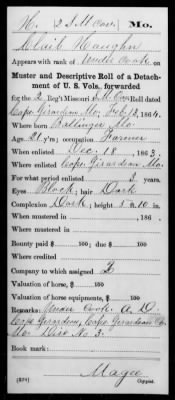 H. 2 S.M. Cav. Mo.
Claib Haughn
Appears with rank of Under Cook on
Muster and Descriptive Roll of a Detach-
ment of U. S. Vols. forwarded
for the 2 Reg't Missouri S.M. Cav. Roll dated
Cape Girardeau Mo. Feb. 13, 1864.
Where born Bollinger Mo.
Age 21 y'rs; occupation Farmer
When enlisted Dec. 18, 1863.
Where enlisted Cape Girardeau Mo.
For what period enlisted 3 years.
Eyes Black; hair Dark
Complexion Dark; height 5 ft. 10 in.
When mustered in , 186 .
Where mustered in
Bounty paid $ 100; due $ 100
Where credited
Company to which assigned
Valuation of horse, $ 100
Valuation of horse equipments, $ 100
Remarks: Under Cook A. D.
Cape Girardeau, Cape Girardeau Co.
Mo. Dist No. 3.
Book mark:
Magee
Copyist.